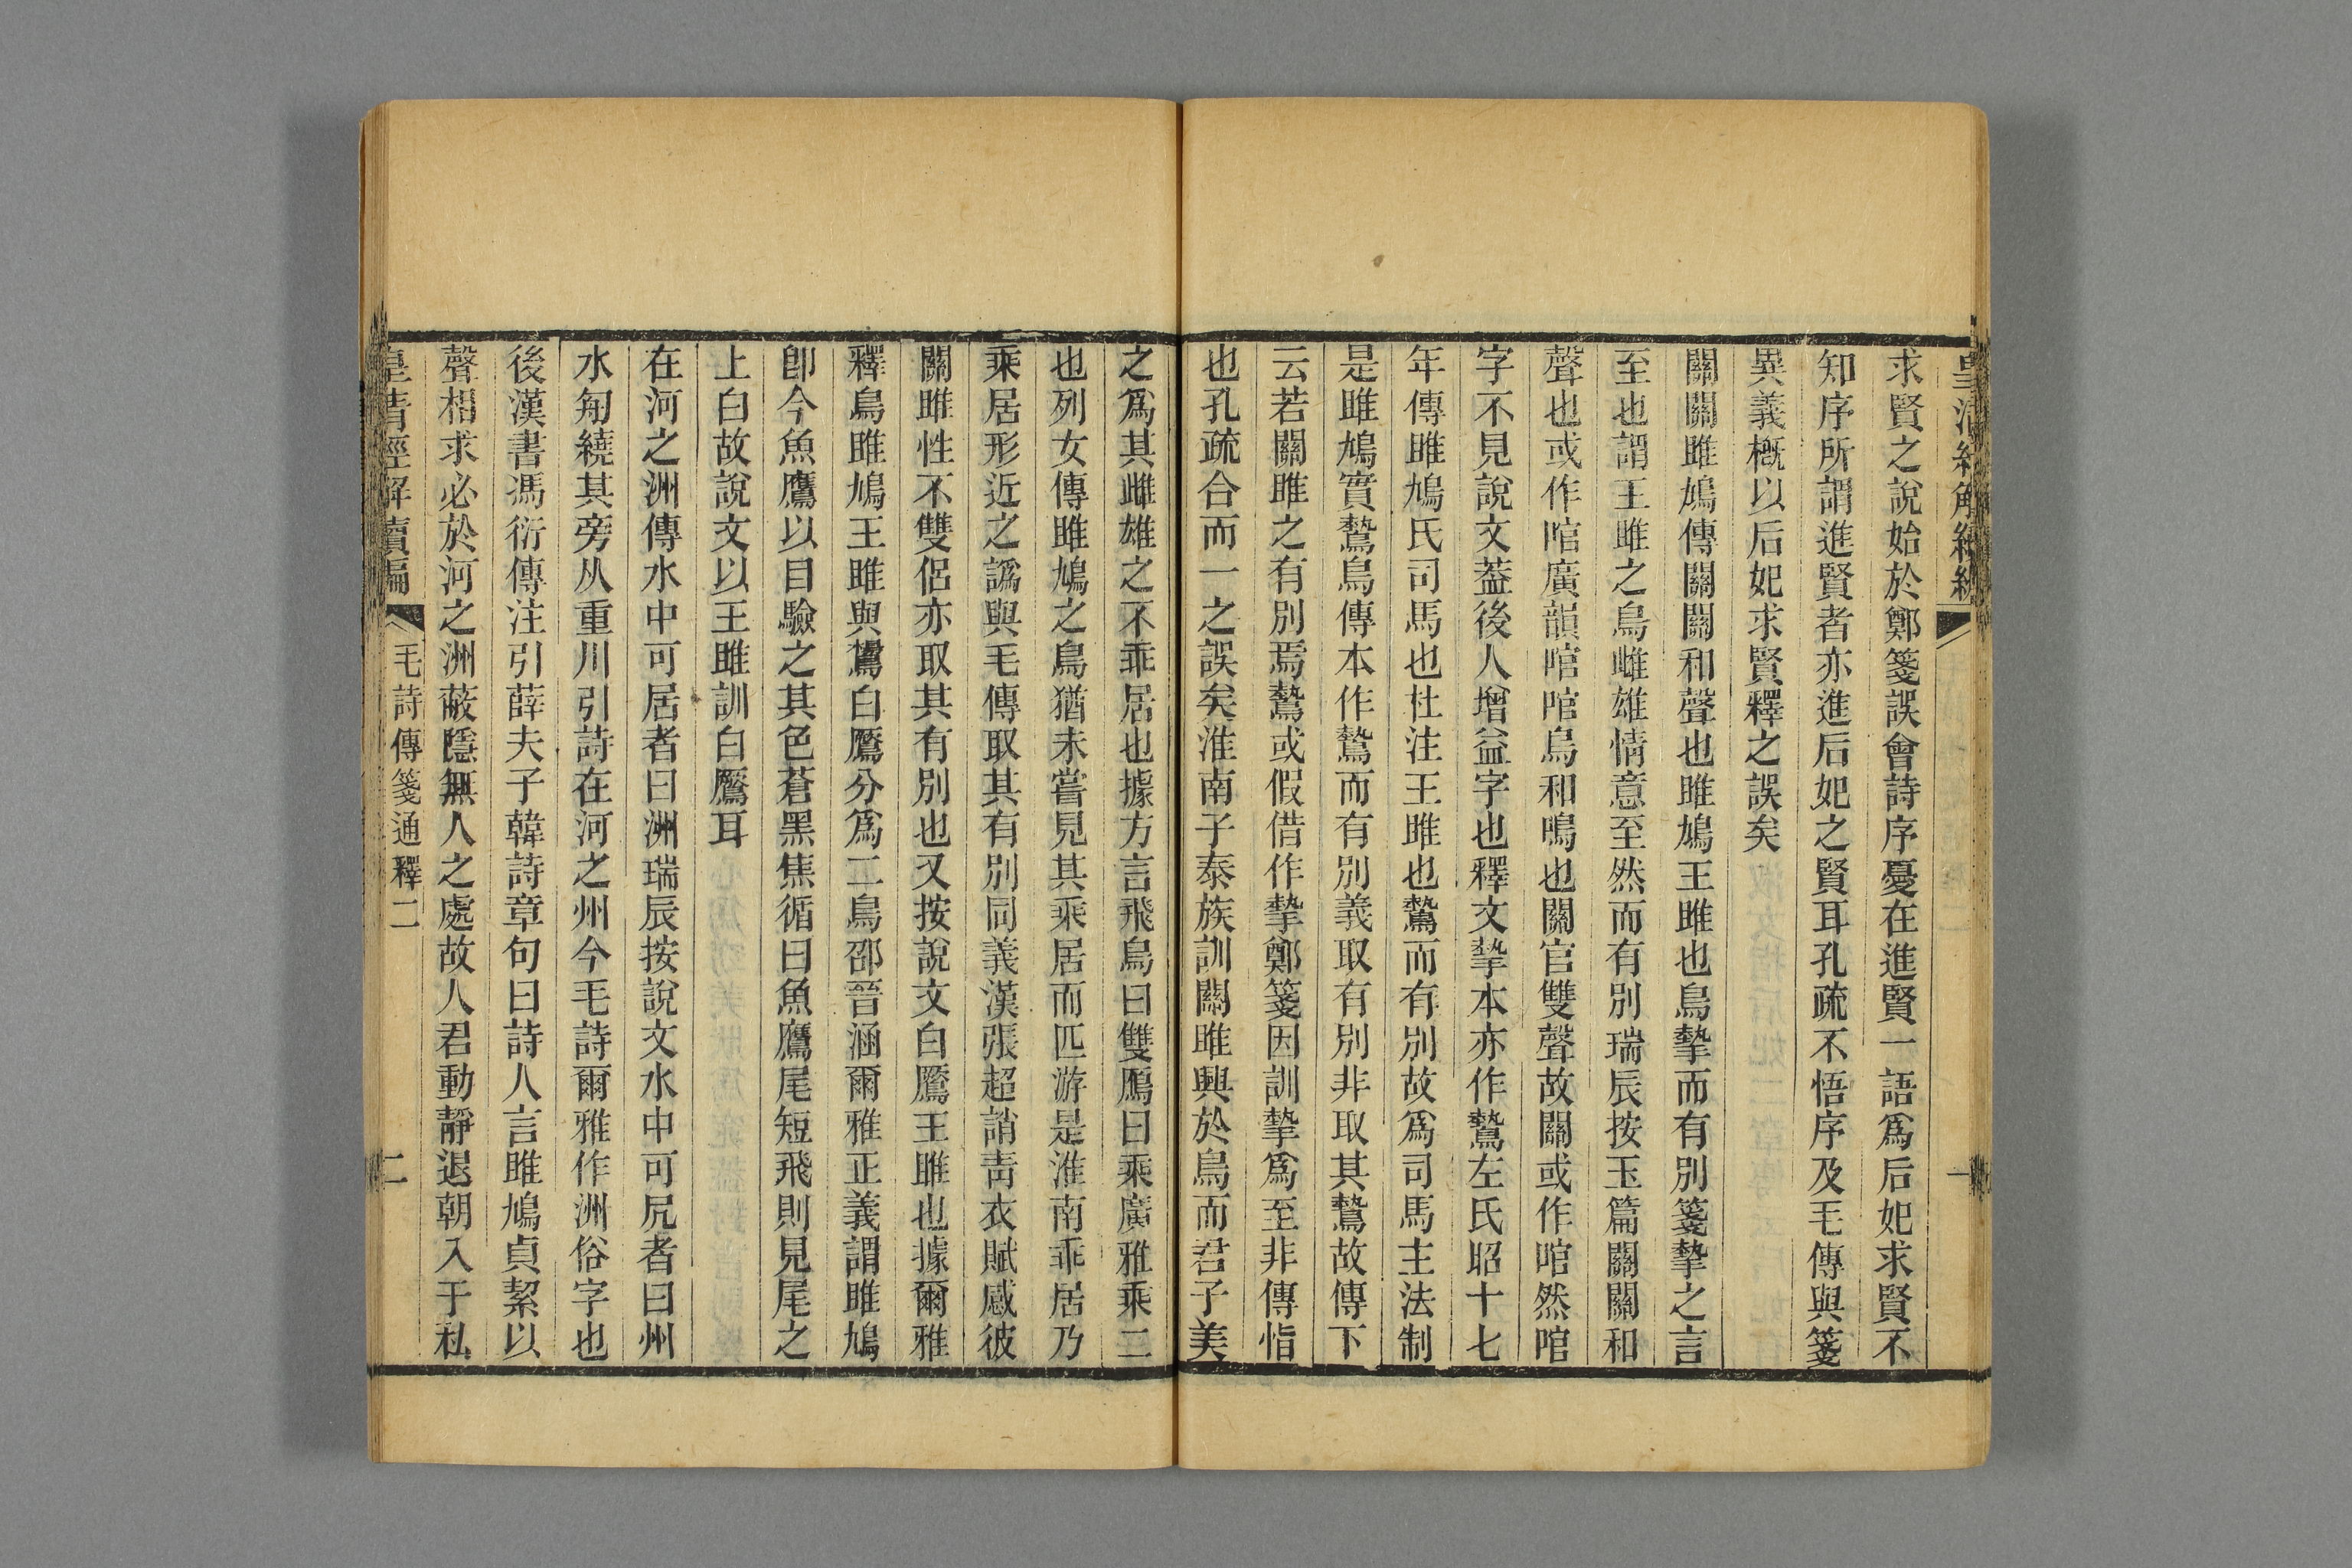 求賢之說始於鄭箋誤會詩序憂在進賢一語爲后妃求賢不
知序所謂進賢者亦進后妃之賢耳孔疏不悟序及毛傳與箋
異義槪以后妃求賢釋之誤矣
關關雎鳩傳關關和聲也雎鳩王雎也鳥摯而有別箋摯之言
至也謂王雎之鳥雌雄情意至然而有別瑞辰按玉篇關關和
聲也或作喧廣韻喧喧鳥和鳴也關官雙聲故關或作喧然喧
字不見說文葢後人增益字也釋文摯本亦作鷙左氏昭十七
年傳雎鳩氏司馬也杜注王雎也鷙而有別故爲司馬主法制
是雎鳩實鷙鳥傳本作鷙而有別義取有別非取其鷙故傳下
云若關雎之有別焉鷙或假借作摯鄭箋因訓摯爲至非傳恉
也孔疏合而一之誤矣淮南子泰族訓關雎興於鳥而君子美
之爲其雌雄之不乖居也據方言飛鳥曰雙鴈曰乘廣雅乘二
也列女傳雎鳩之鳥猶未嘗見其乘居而匹游是淮南乖居乃
乘居形近之譌與毛傳取其有別同義漢張超誚靑衣賦感彼
關雎性不雙侶亦取其有別也又按說文白鷢王雎也據爾雅
釋鳥雎鳩王雎與鸉白鷢分爲二鳥邵晉涵爾雅正義謂雎鳩
卽今魚鷹以目驗之其色蒼黑焦循曰魚鷹尾短飛則見尾之
上白故說文以王雎訓白鷢耳
在河之洲傳水中可居者曰洲瑞辰按說文水中可凥者曰州
水匊繞其旁从重川引詩在河之州今毛詩爾雅作洲俗字也
後漢書馮衍傳注引薛夫子韓詩章句曰詩人言雎鳩貞絜以
聲相求必於河之洲蔽隱無人之處故人君動靜退朝入于私
皇清經解續編
毛詩傳箋通釋二
二